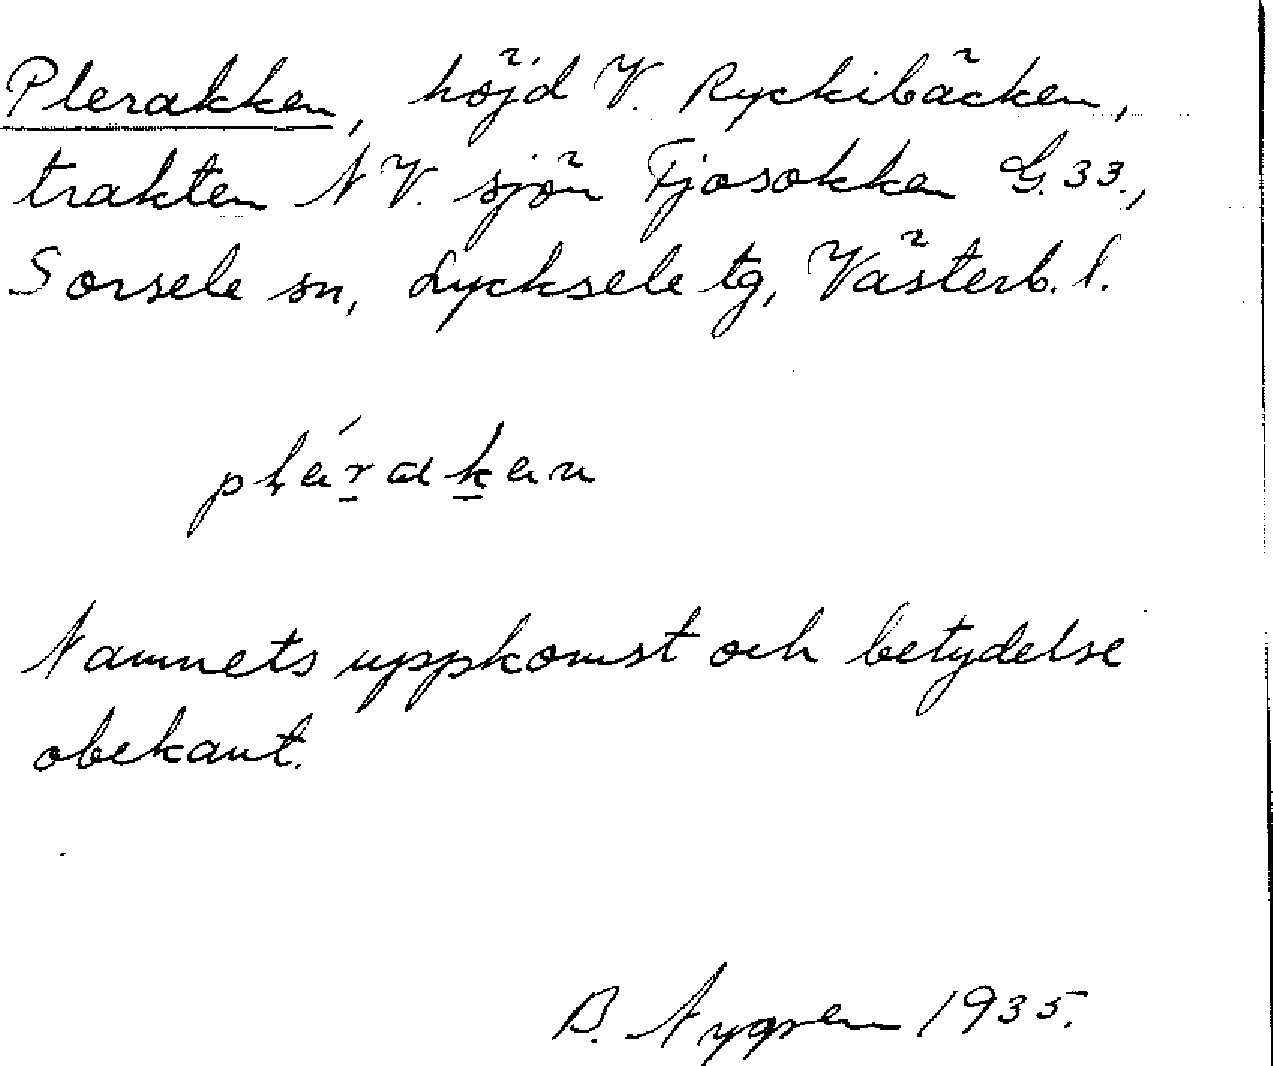 Plerakken, höjd V. Ryckibäcken,
trakten NV. sjön Tjasokken G.33.,
Sorsele sn, Lycksele tg, Västerb. l.
pléraken
Namnets uppkomst och betydelse
obekant.
B. Nygren 1935.